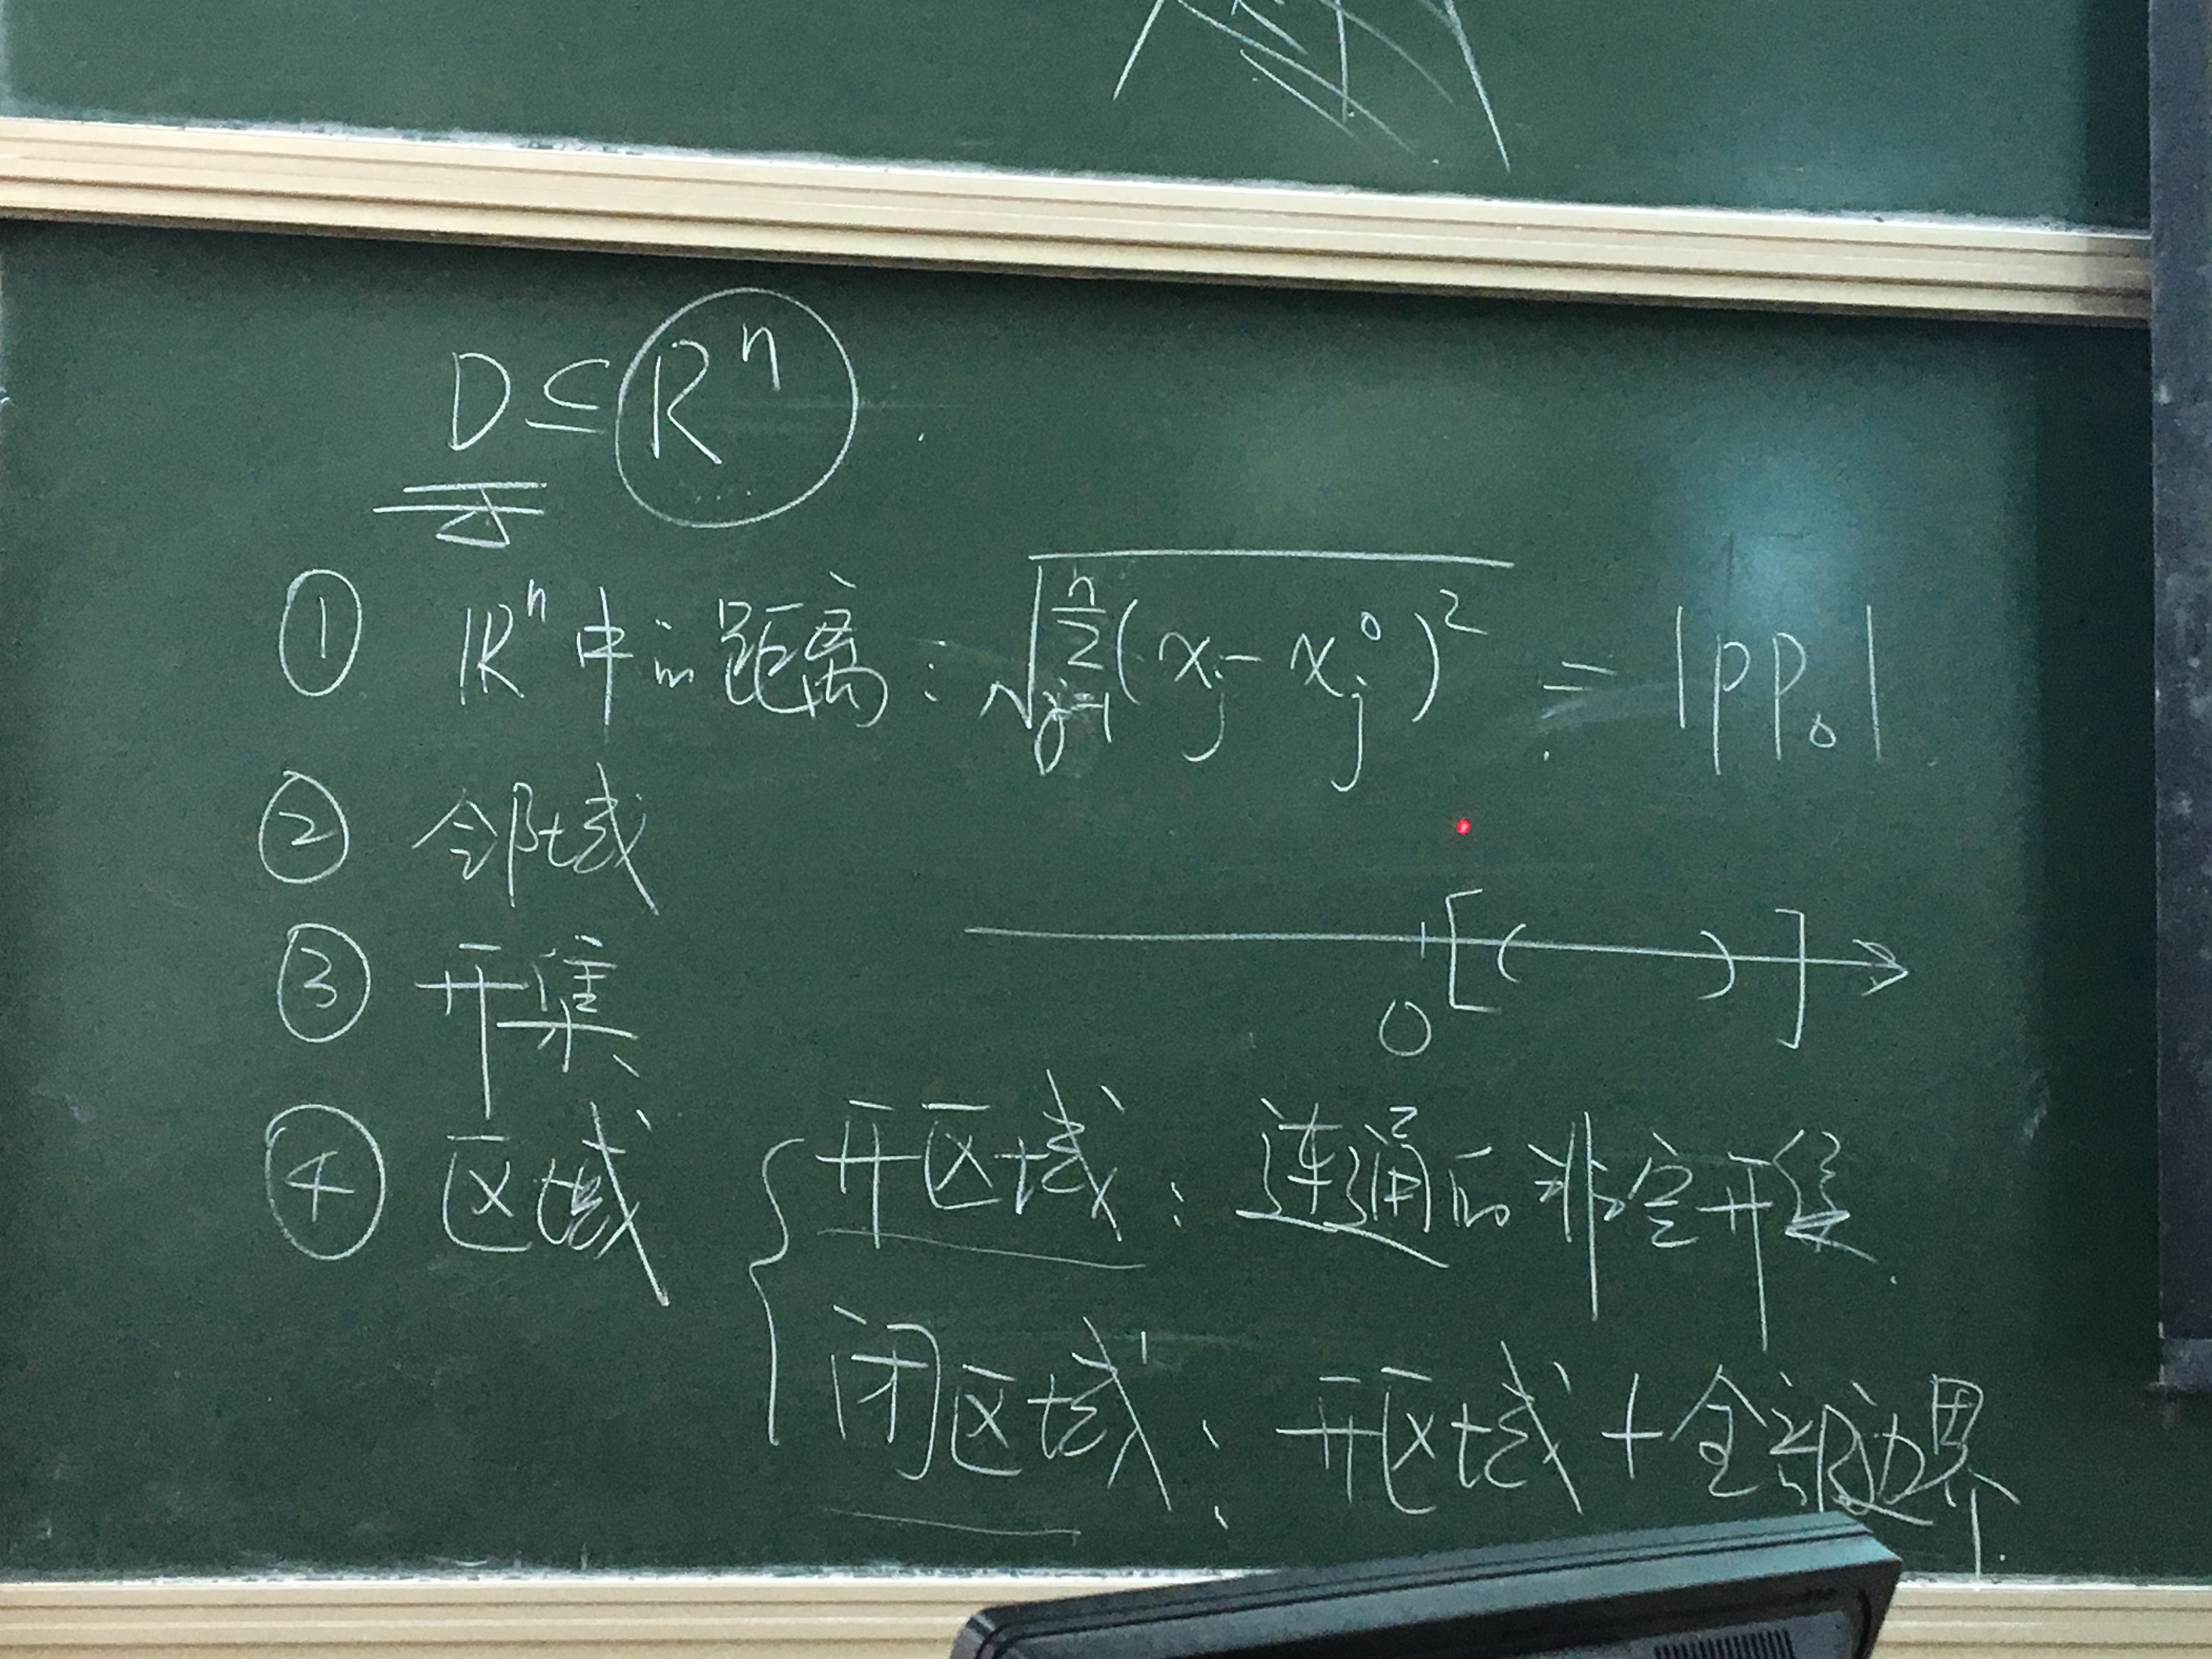 D ⊆ Rⁿ
① ℝⁿ中的距离: √(∑ⱼ₌₁ⁿ(xⱼ - xⱼ⁰)²) = |PP₀|
② 邻域
③ 开集
0 [ ( ) ]
④ 区域 { 开区域: 连通的非空开集.
闭区域: 开区域 + 全部边界.